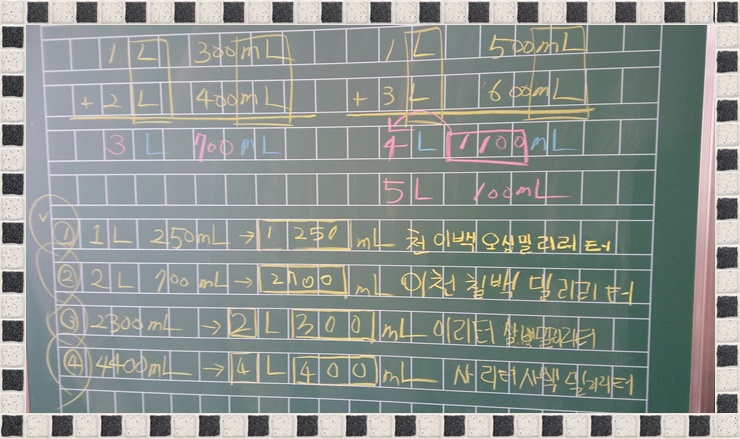 1 L 300mL 1 L 500mL
+ 2 L 400mL + 3 L 600mL
3 L 700mL 4 L 1100mL
5 L 100mL
① 1L 250mL → 1250 mL 천 이백 오십 밀리리터
② 2L 700mL → 2700 mL 이천 칠백 밀리리터
③ 2300mL → 2 L 300 mL 이 리터 삼백 밀리리터
④ 4400mL → 4 L 400 mL 사 리터 사백 밀리리터